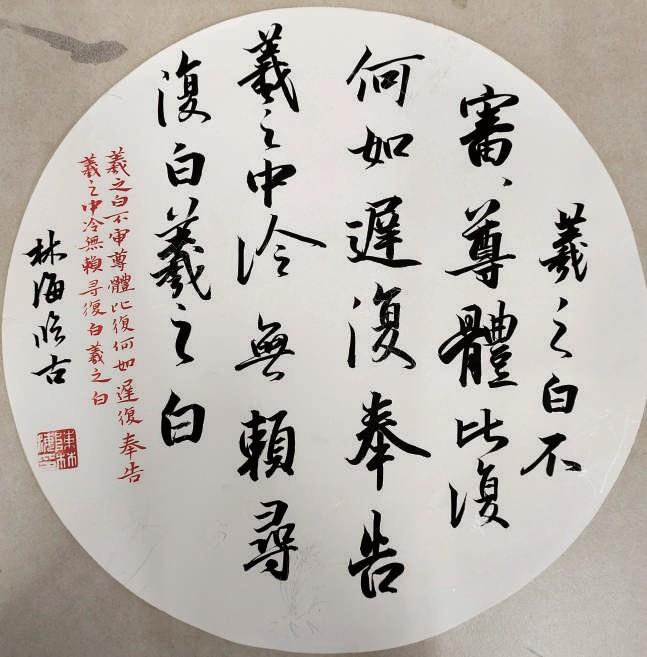 羲之白不
審、尊體比復
何如遲復奉告
羲之中冷無賴尋
復白羲之白
羲之白不審尊體比復何如遲復奉告
羲之中冷無賴尋復白羲之白
林海临古